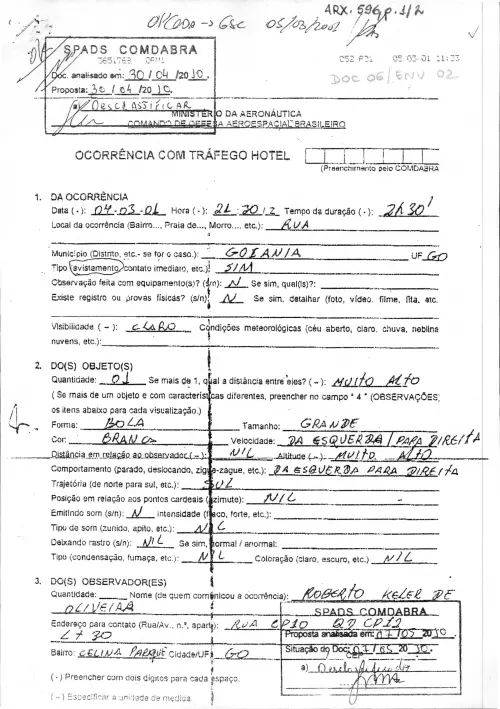 ARX. 596, p. 1/2
05/03/2001
SPADS COMDABRA
C52 P31 05-03-01 11:33
Doc. analisado em: 30 / 04 /20 10.
DOC 06/ENV 02
Proposta: 30 / 04 /20 10.
a) Desclassificar
MINISTÉRIO DA AERONÁUTICA
COMANDO DE DEFESA AEROESPACIAL BRASILEIRO
OCORRÊNCIA COM TRÁFEGO HOTEL
(Preenchimento pelo COMDABRA
1. DA OCORRÊNCIA
Data (-): 04-03-01 Hora (-): 21:30/2 Tempo da duração (-): 2h30'
Local da ocorrência (Bairro..., Praia de..., Morro..., etc.): RUA
Município (Distrito, etc.- se for o caso.): GOIANIA UF GO
Tipo (avistamento, contato imediato, etc.): SIM
Observação feita com equipamento(s)? (s/n): N Se sim, qual(is)?:
Existe registro ou provas físicas? (s/n): N Se sim, detalhar (foto, vídeo, filme, fita, etc.
Visibilidade ( – ): CLARO Condições meteorológicas (céu aberto, claro, chuva, neblina
nuvens, etc.):
2. DO(S) OBJETO(S)
Quantidade: 01 Se mais de 1, qual a distância entre eles? ( – ): MUITO ALTO
( Se mais de um objeto e com características diferentes, preencher no campo " 4 " (OBSERVAÇÕES)
os itens abaixo para cada visualização.)
Forma: BOLA Tamanho: GRANDE
Cor: BRANCA Velocidade: DA ESQUERDA / PARA DIREITA
Distância em relação ao observador (–): NIL Altitude (–): MUITO ALTO
Comportamento (parado, deslocando, zigue-zague, etc.): DA ESQUERDA PARA DIREITA
Trajetória (de norte para sul, etc.): SUL
Posição em relação aos pontos cardeais (azimute): NIL
Emitindo som (s/n): N intensidade (fraco, forte, etc.):
Tipo de som (zunido, apito, etc.): NIL
Deixando rastro (s/n): NIL Se sim, normal / anormal:
Tipo (condensação, fumaça, etc.): NIL Coloração (claro, escuro, etc.) NIL
3. DO(S) OBSERVADOR(ES)
Quantidade: Nome (de quem comunicou a ocorrência): ROBERTO KELER DE
OLIVEIRA
SPADS COMDABRA
Endereço para contato (Rua/Av., n.º, apart): RUA CP10 QD CP12
LT 30
Proposta analisada em: 07/05 2010
Bairro: CELINA PARQUE Cidade/UF: GO
Situação do Doc: 07/05 2010.
a) Desclassificado
(-) Preencher com dois dígitos para cada espaço.
(–) Especificar a unidade de medida.